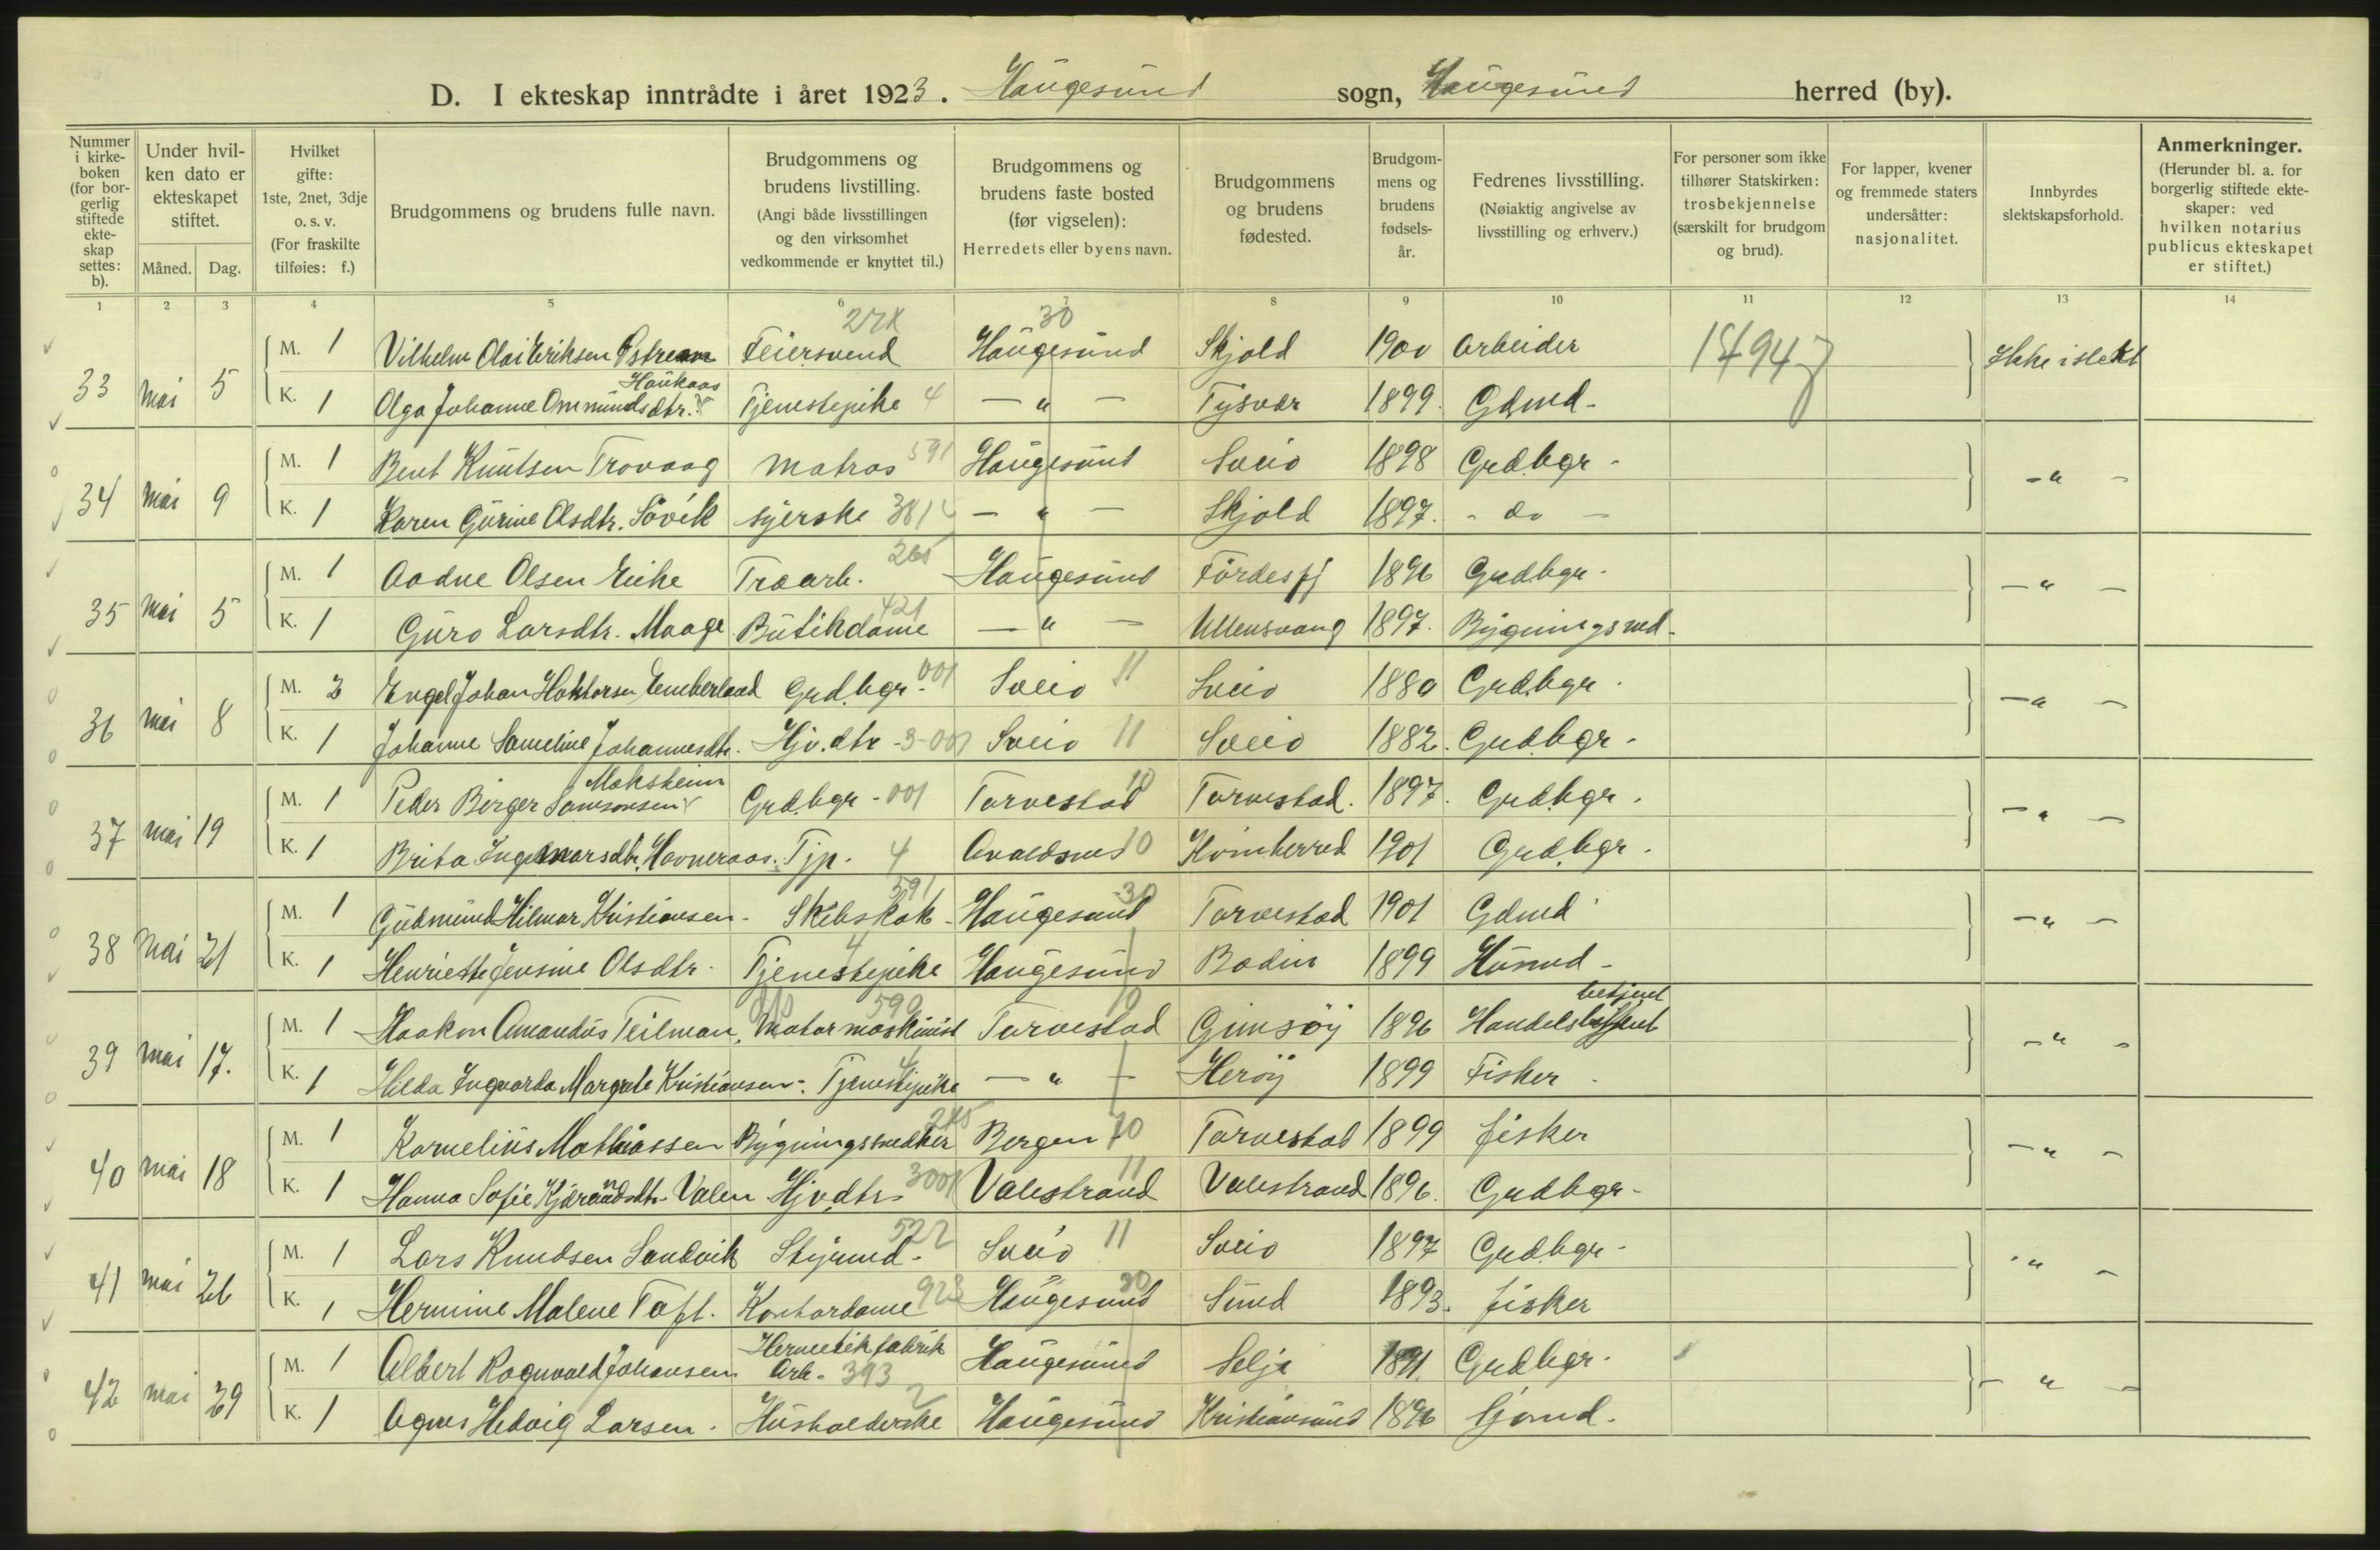 D. I ekteskap inntrådte i året 1923. Haugesund sogn, Haugesund herred (by).
Nummer i kirkeboken (for borgerlig stiftede ekteskap settes: b).
Under hvilken dato er ekteskapet stiftet.
Måned. Dag.
Hvilket gifte: 1ste, 2net, 3dje o. s. v. (For fraskilte tilføies: f.)
Brudgommens og brudens fulle navn.
Brudgommens og brudens livstilling. (Angi både livsstillingen og den virksomhet vedkommende er knyttet til.)
Brudgommens og brudens faste bosted (før vigselen): Herredets eller byens navn.
Brudgommens og brudens fødested.
Brudgommens og brudens fødselsår.
Fedrenes livsstilling. (Nøiaktig angivelse av livsstilling og erhverv.)
For personer som ikke tilhører Statskirken: trosbekjennelse (særskilt for brudgom og brud).
For lapper, kvener og fremmede staters undersåtter: nasjonalitet.
Innbyrdes slektskapsforhold.
Anmerkninger. (Herunder bl. a. for borgerlig stiftede ekteskaper: ved hvilken notarius publicus ekteskapet er stiftet.)
1 2 3 4 5 6 7 8 9 10 11 12 13 14
30
33 mai 5 M. 1 Vilhelm Olai Eriksen Østrem Feiersvend Haugesund Skjold 1900 Arbeider Ikke i slekt
K. 1 Olga Johanne Ommundsdtr. Haukaas Tjenestepike 4 — " — Tysvær 1899. Gdmd-
34 mai 9 M. 1 Bent Knutsen Trovaag Matros 591 Haugesund Sveio 1898 Grdbgr. - " -
K. 1 Karen Gurine Olsdtr. Søvik syerske 381 — " — Skjold 1897. - do -
35 mai 5 M. 1 Aadne Olsen Eike Træarb. 265 Haugesund Førdesfj 1896 Grdbgr. - " -
K. 1 Guro Larsdtr. Maage Butikdame 421 — " — Ullensvang 1897. Bygningssned-
36 mai 8 M. 2 Engel Johan Emberland Grd.bgr. 001 Sveio 11 Sveio 1880 Grd.bgr. - " -
K. 1 Johanne Sameline Johannesdtr. Hjv.dtr -3-001 Sveio 11 Sveio 1882. Grd.bgr.
37 mai 19 M. 1 Peder Birger Samsonsen Moksheim Grd.bgr - 001 Torvestad 10 Torvestad. 1897. Grd.bgr. - " -
K. 1 Brita Ingemarsdtr. Havneraas. Tjp. 4 Avaldsnes 10 Kvinherred 1901 Grd.bgr.
38 mai 21 M. 1 Gudmund Hilmar Kristiansen. Skibskok 591 Haugesund 30 Torvestad 1901 Gdmd - " -
K. 1 Henriette Jensine Olsdtr. Tjenestepike 4 Haugesund Bodin 1899 Husmd -
39 mai 17. M. 1 Haakon Amandus Teilman, Motormaskinist 590 Torvestad 10 Gimsøy 1896 Handelsbetjent betjent - " -
K. 1 Hilda Ingvarda Margrete Kristiansen. Tjenestepike 4 — " — Herøy 1899 Fisker
40 mai 18 M. 1 Kornelius Mathiassen Bygningssnedker Bergen Torvestad 1899 fisker - " -
K. 1 Hanna Sofie Kjærandsdtr. Valen Hjv.dtr. 3001 Valestrand 11 Valestrand 1896. Grdbgr.
41 mai 26 M. 1 Lars Knudsen Sandvik Styrmd. 522 Sveio 11 Sveio 1897 Grd.bgr. - " -
K. 1 Hermine Malene Toft. Kontordame 923 Haugesund 30 Sund 1893. fisker
42 mai 29 M. 1 Albert Rognvald Johansen Hermetikfabrik Arb. 393 Haugesund Selje 1891. Grdbgr. - " -
K. 1 Agnes Hedvig Larsen. Husholderske 2 Haugesund Kristiansund 1896 Sjømd.